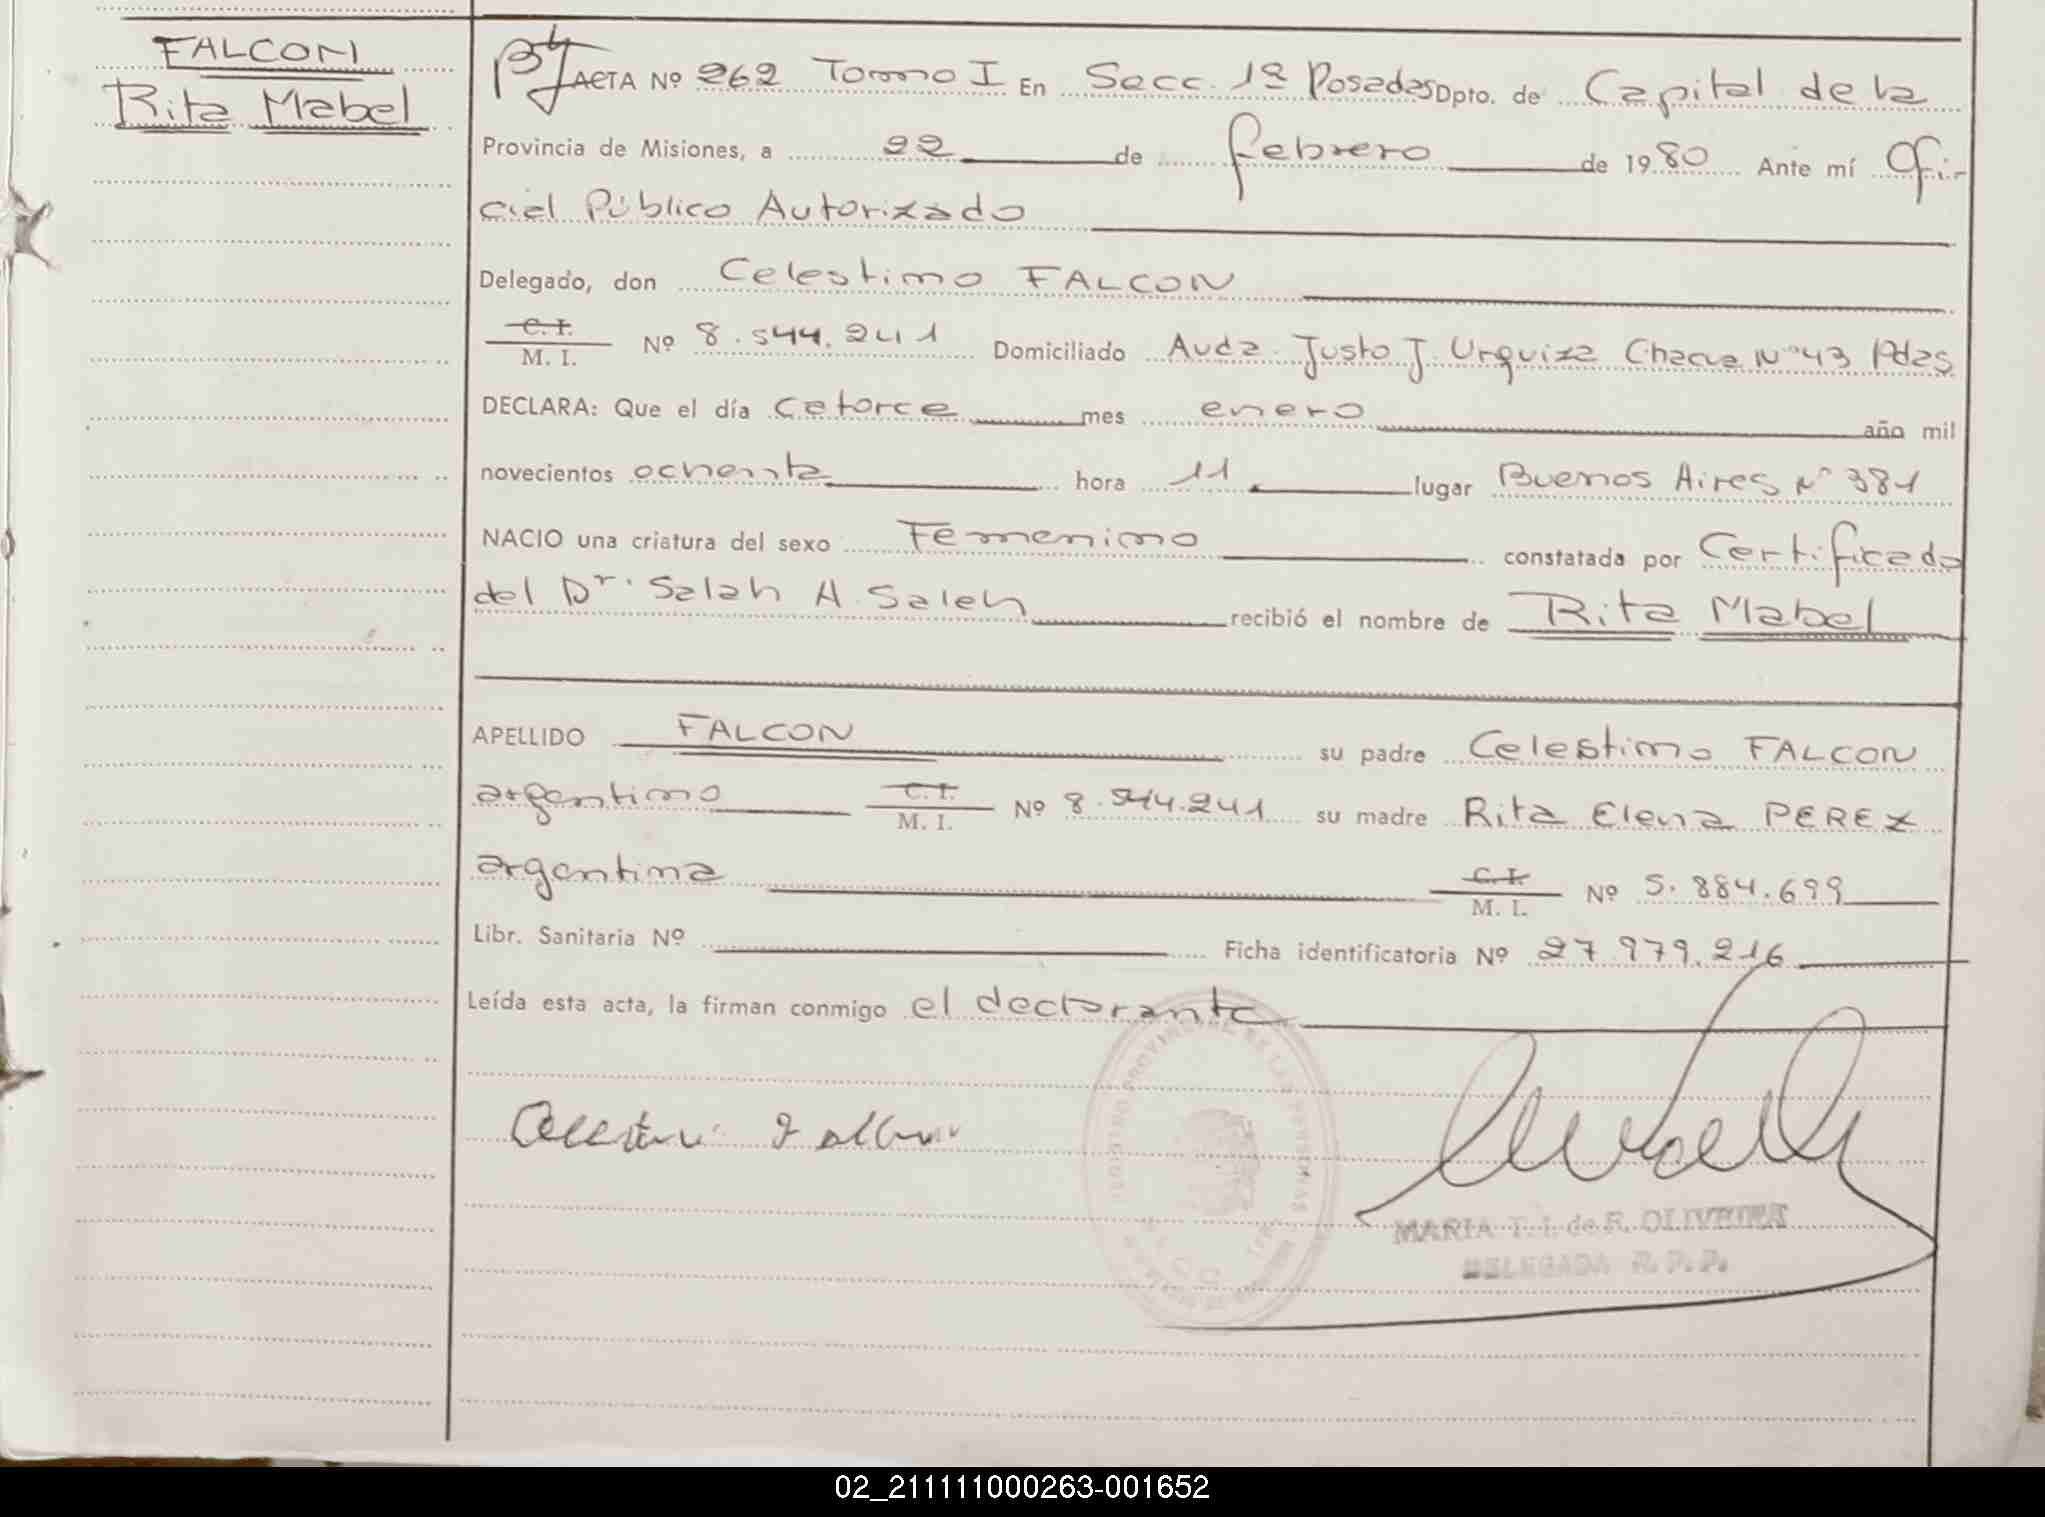 FALCON
Rita Mabel
ACTA Nº 262 Tomo I En Secc. 1ª Posadas Dpto. de Capital de la
Provincia de Misiones, a 22 de febrero de 1980 Ante mí Ofi-
cial Público Autorizado
Delegado, don Celestino FALCON
C. I.
M. I. Nº 8.544.241 Domiciliado Avda. Justo J. Urquiza Chacra Nº 43 Pdas
DECLARA: Que el día catorce mes enero año mil
novecientos ochenta hora 11 lugar Buenos Aires Nº 381
NACIO una criatura del sexo Femenino constatada por Certificado
del Dr. Salah A. Saleh recibió el nombre de Rita Mabel
APELLIDO FALCON su padre Celestino FALCON
argentino C. I. M. I. Nº 8.544.241 su madre Rita Elena PEREZ
argentina C. I. M. I. Nº 5.884.699
Libr. Sanitaria Nº Ficha identificatoria Nº 27.979.216
Leída esta acta, la firman conmigo el declarante
MARIA T. I. de R. OLIVEIRA
DELEGADA R. P. P.
02_211111000263-001652